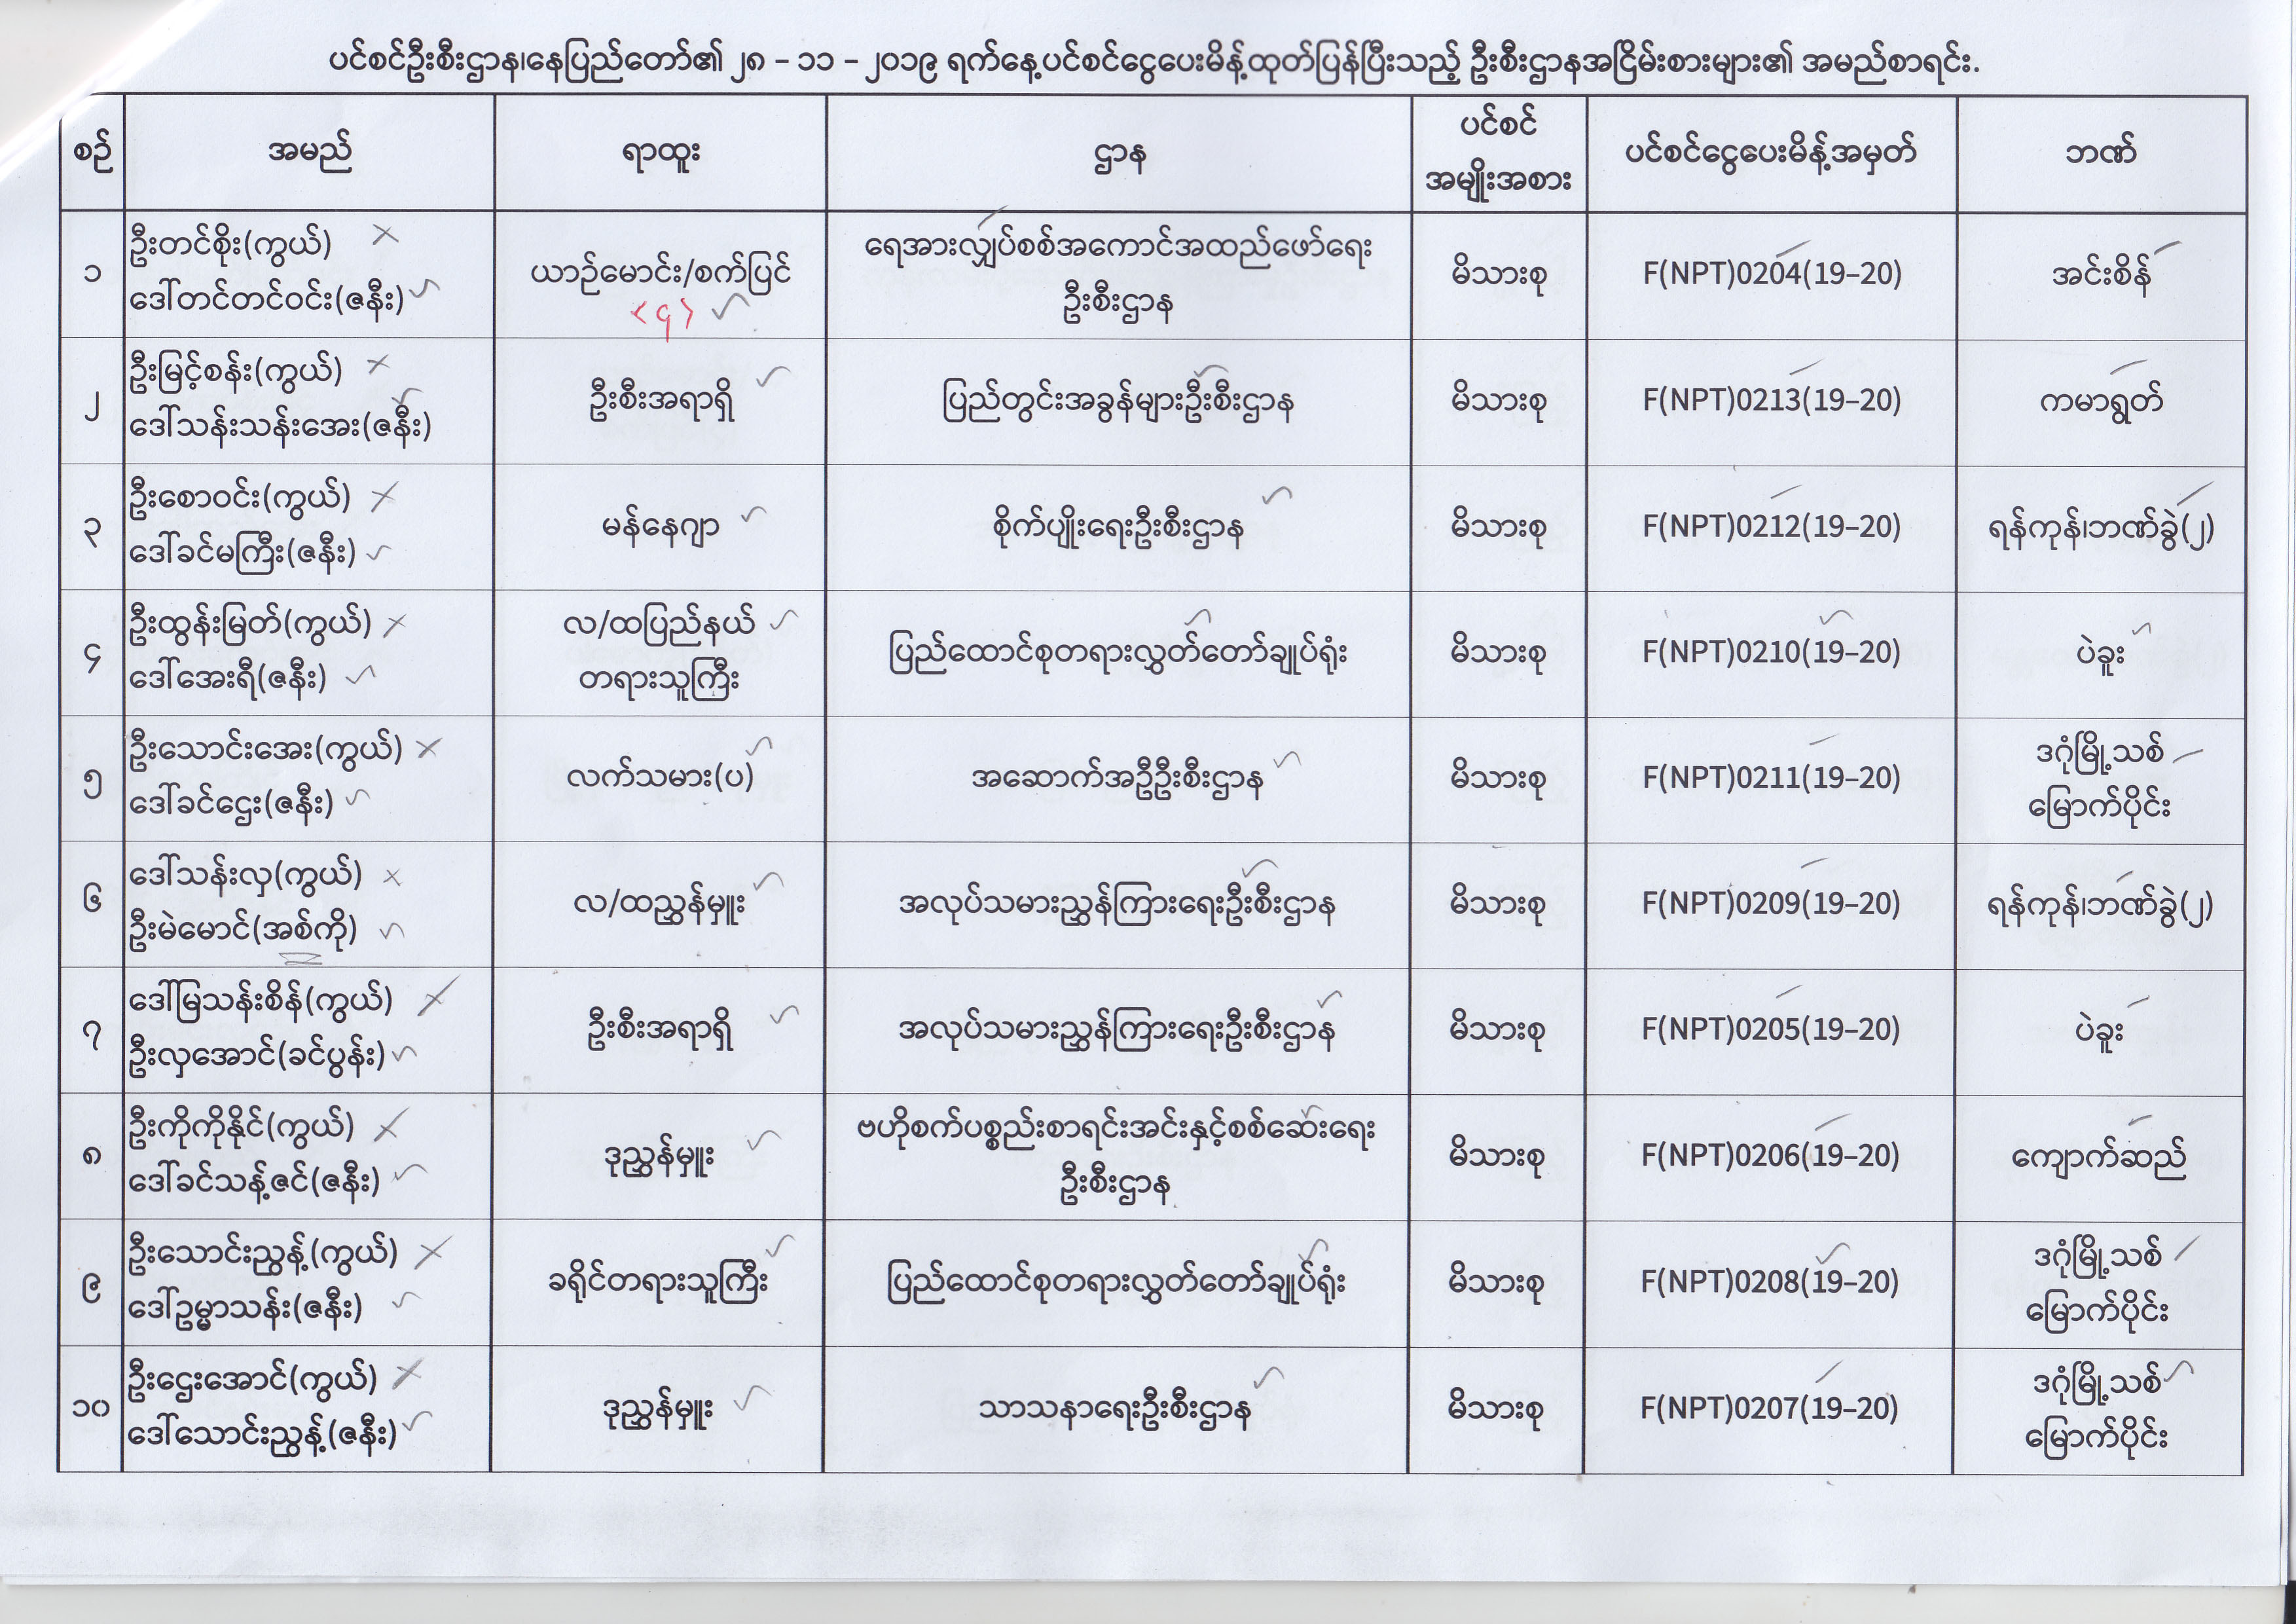 ပင်စင်ဦးစီးဌာန၊နေပြည်တော်၏ ၂၈ – ၁၁ – ၂၀၁၉ ရက်နေ့ပင်စင်ငွေပေးမိန့်ထုတ်ပြန်ပြီးသည့် ဦးစီးဌာနအငြိမ်းစားများ၏ အမည်စာရင်း.
စဉ် အမည် ရာထူး ဌာန ပင်စင် အမျိုးအစား ပင်စင်ငွေပေးမိန့်အမှတ် ဘဏ်
၁ ဦးတင်စိုး(ကွယ်) ဒေါ်တင်တင်ဝင်း(ဇနီး) ယာဉ်မောင်း/စက်ပြင် <၄> ရေအားလျှပ်စစ်အကောင်အထည်ဖော်ရေး ဦးစီးဌာန မိသားစု F(NPT)0204(19–20) အင်းစိန်
၂ ဦးမြင့်စန်း(ကွယ်) ဒေါ်သန်းသန်းအေး(ဇနီး) ဦးစီးအရာရှိ ပြည်တွင်းအခွန်များဦးစီးဌာန မိသားစု F(NPT)0213(19–20) ကမာရွတ်
၃ ဦးစောဝင်း(ကွယ်) ဒေါ်ခင်မကြီး(ဇနီး) မန်နေဂျာ စိုက်ပျိုးရေးဦးစီးဌာန မိသားစု F(NPT)0212(19–20) ရန်ကုန်၊ဘဏ်ခွဲ(၂)
၄ ဦးထွန်းမြတ်(ကွယ်) ဒေါ်အေးရီ(ဇနီး) လ/ထပြည်နယ် တရားသူကြီး ပြည်ထောင်စုတရားလွှတ်တော်ချုပ်ရုံး မိသားစု F(NPT)0210(19–20) ပဲခူး
၅ ဦးသောင်းအေး(ကွယ်) ဒေါ်ခင်ဌေး(ဇနီး) လက်သမား(ပ) အဆောက်အဦဦးစီးဌာန မိသားစု F(NPT)0211(19–20) ဒဂုံမြို့သစ် မြောက်ပိုင်း
၆ ဒေါ်သန်းလှ(ကွယ်) ဦးမဲမောင်(အစ်ကို) လ/ထညွှန်မှူး အလုပ်သမားညွှန်ကြားရေးဦးစီးဌာန မိသားစု F(NPT)0209(19–20) ရန်ကုန်၊ဘဏ်ခွဲ(၂)
၇ ဒေါ်မြသန်းစိန်(ကွယ်) ဦးလှအောင်(ခင်ပွန်း) ဦးစီးအရာရှိ အလုပ်သမားညွှန်ကြားရေးဦးစီးဌာန မိသားစု F(NPT)0205(19–20) ပဲခူး
၈ ဦးကိုကိုနိုင်(ကွယ်) ဒေါ်ခင်သန့်ဇင်(ဇနီး) ဒုညွှန်မှူး ဗဟိုစက်ပစ္စည်းစာရင်းအင်းနှင့်စစ်ဆေးရေး ဦးစီးဌာန မိသားစု F(NPT)0206(19–20) ကျောက်ဆည်
၉ ဦးသောင်းညွန့်(ကွယ်) ဒေါ်ဥမ္မာသန်း(ဇနီး) ခရိုင်တရားသူကြီး ပြည်ထောင်စုတရားလွှတ်တော်ချုပ်ရုံး မိသားစု F(NPT)0208(19–20) ဒဂုံမြို့သစ် မြောက်ပိုင်း
၁၀ ဦးဌေးအောင်(ကွယ်) ဒေါ်သောင်းညွန့်(ဇနီး) ဒုညွှန်မှူး သာသနာရေးဦးစီးဌာန မိသားစု F(NPT)0207(19–20) ဒဂုံမြို့သစ် မြောက်ပိုင်း